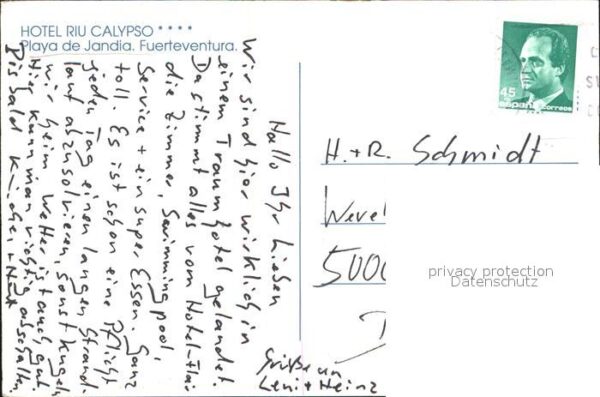 HOTEL RIU CALYPSO ****
Playa de Jandia. Fuerteventura.
Hallo Ihr Lieben
Wir sind hier wirklich in
einem Traumhotel gelandet.
Da stimmt alles vom Hotel-Flair
die Zimmer, Swimmingpool,
Service + ein super Essen. Ganz
toll. Es ist schon eine Pflicht
jeden Tag einen langen Strand-
lauf abzusolvieren, sonst kugeln
wir heim. Wetter ist auch gut.
Hier kann man richtig abschalten.
Bis bald
Grüße an
Leni + Heinz
45
españa correos
H. + R. Schmidt
Wevel
5000
privacy protection
Datenschutz